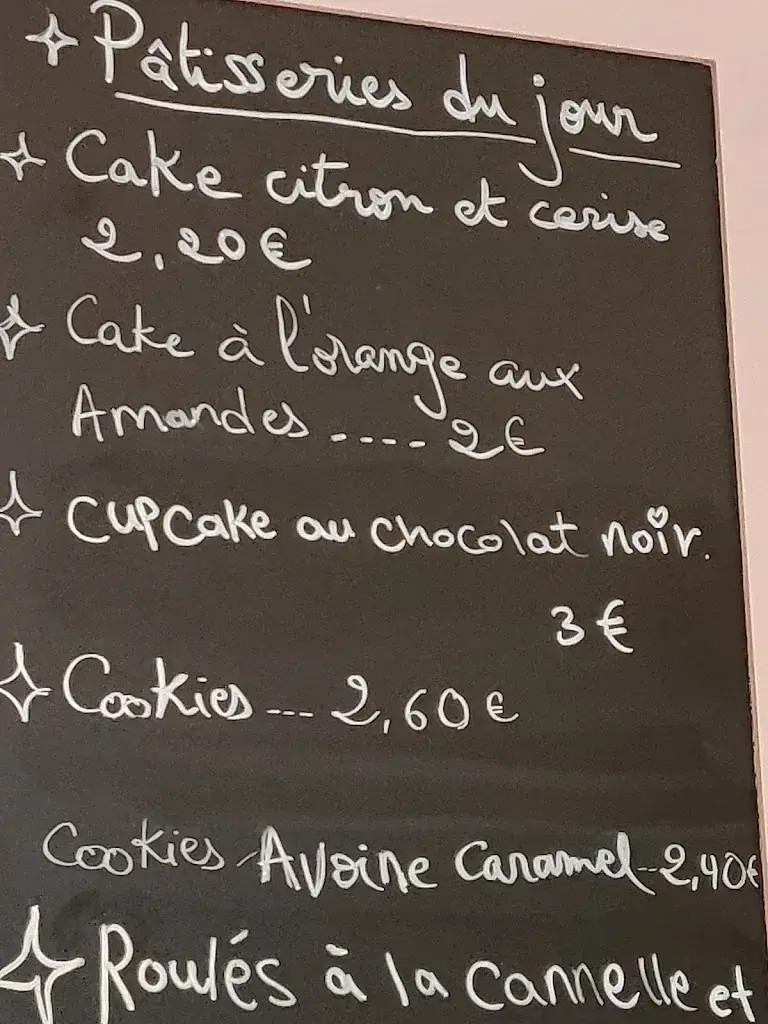 Pâtisseries du jour
Cake citron et cerise
2,20€
Cake à l'orange aux
Amandes .... 2€
Cupcake au chocolat noir.
3€
Cookies --- 2,60€
Cookies Avoine Caramel--2,40€
Roulés à la cannelle et